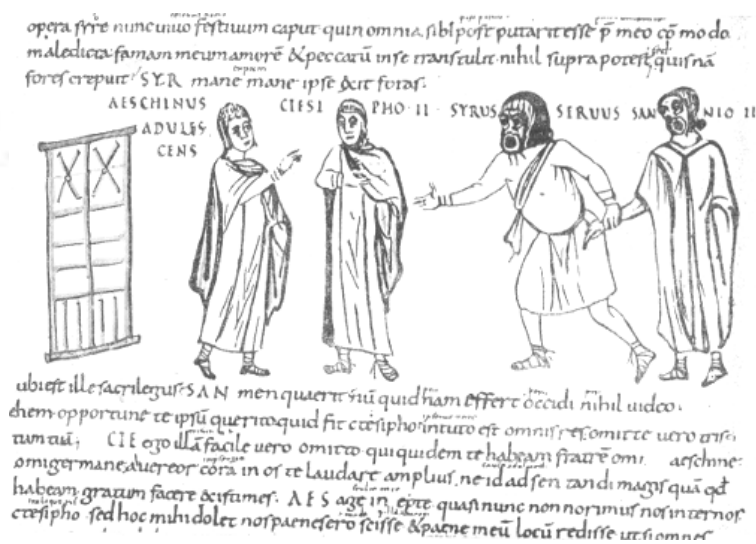 opera ſtre nunc uiuo feſtiuum caput quin omnia ſibi poſt putarit eſſe p̄ meo cōmodo
maledicta famam meum amorē & peccatū in se tranſtulit nihil ſupra poteſt quiſnā
foreſ crepuit SYR mane mane ipſe exit foraſ.
AESCHINUS CIESI PHO · II · SYRUS SERUUS SAN NIO II
ADULES
CENS
ubi eſt ille ſacrilegus SAN men quaerit nū quid nam effert occidi nihil uideo.
ehem opportune te ipſū querito quid fit cteſipho in tuto eſt omniſ reſ omitte uero triſti
tiam tuā; CIE ego illā facile uero omitto qui quidem te habeam fratrē omi aeſchine
omi germane a uereor corā in oſ te laudare ampliuſ. ne id adſentandi magiſ quā qđ
habeam gratum facere exiſtimeſ. AES age inepte quaſi nunc non norimuſ noſ inter noſ
cteſipho ſed hoc mihi dolet noſ paene ſero ſciſſe & paene meū locū rediſſe ut ſi omneſ